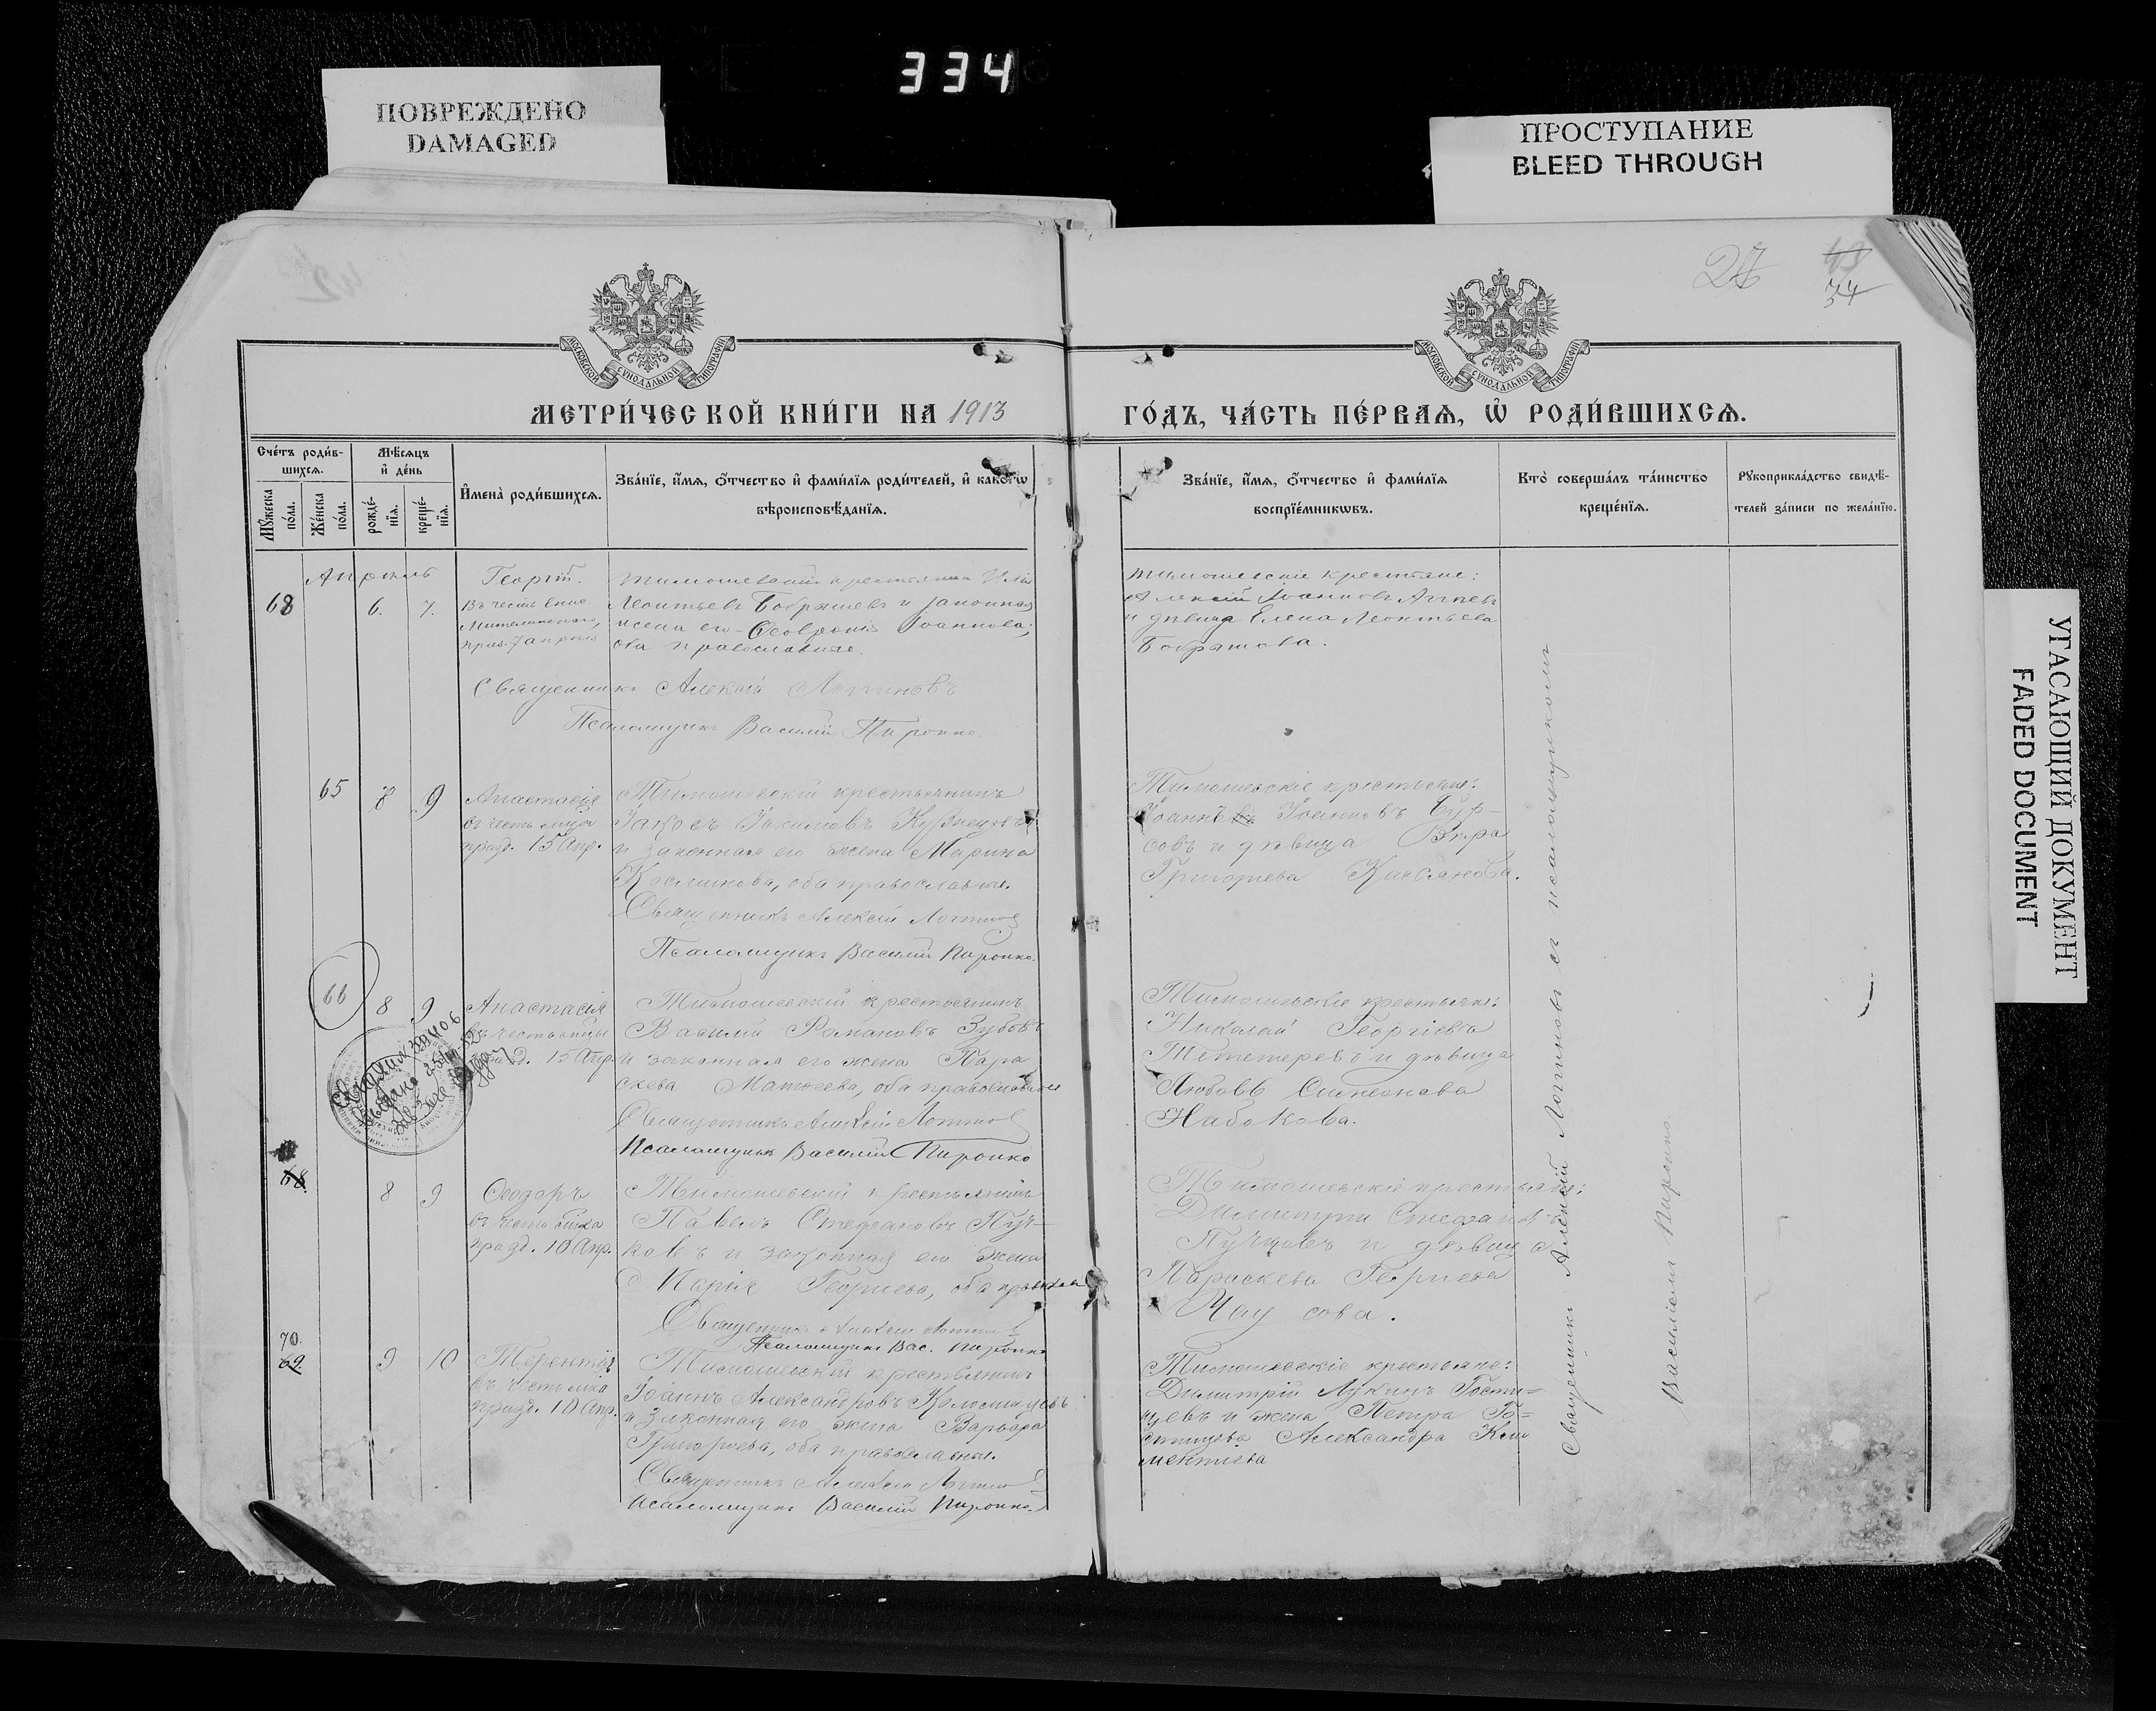 334
ПОВРЕЖДЕНО
DAMAGED
ПРОСТУПАНИЕ
BLEED THROUGH
УГАСАЮЩИЙ ДОКУМЕНТ
FADED DOCUMENT
34
МОСКОВСКОЙ СѴНОДАЛЬНОЙ ТИПОГРАФІИ
МОСКОВСКОЙ СѴНОДАЛЬНОЙ ТИПОГРАФІИ
МЕТРИ́ЧЕСКОЙ КНИ́ГИ НА 1913
ГО́ДЪ, ЧА́СТЬ ПЕ́РВАѦ, Ѡ҆ РОДИ́ВШИХСѦ.
Сче́тъ роди́в-
шихсѧ.
Мꙋжеска по́ла.
Же́нска по́ла.
Мѣ́сѧцъ
и҆ де́нь
рожде́-
нїѧ.
креще́-
нїѧ.
И҆мена̀ роди́вшихсѧ.
Зва́нїе, и҆́мѧ, ѻ҆́тчество и҆ фами́лїѧ роди́телей, и҆ како́гѡ
вѣроисповѣ́данїѧ.
Зва́нїе, и҆́мѧ, ѻ҆́тчество и҆ фами́лїѧ
воспрїе́мникѡвъ.
Кто̀ соверша́лъ та́инство
креще́нїѧ.
Рꙋкоприкла́дство свидѣ́-
телей за́писи по жела́нїю.
Апрѣль
68
6.
7.
Георгій.
Въ честь
праз. 7 апрѣля
Тимошевскій крестьянинъ Илья
Леонтьевъ Бобряшевъ и законная
жена его Ѳеовронія Іоаннова,
оба православные.
Священникъ Алексій Логиновъ
Псаломщикъ Василій Пиронко.
Тимошевскіе крестьяне:
Алексій Іоанновъ
и дѣвица Елена Леонтьева
Бобряшова.
65
8
9
Анастасія
въ честь мца
празд. 15 Апр.
Тимошевскій крестьянинъ
Іаковъ Іакимовъ Кузнецовъ
и законная его жена Марина
Космикова, оба православные.
Священникъ Алексій Логинов
Псаломщикъ Василій Пиронко.
Тимошевскіе крестьяне:
Іоаннъ Іоанновъ Бур-
совъ и дѣвица Вѣра
Григорьева Кассянова.
66
8
9
Анастасія
въ честь мцы
празд. 15 Апр.
Тимошевскій крестьянинъ
Василій Романовъ Зубовъ
и законная его жена Пара
скева Матѳеева, оба православные
Священникъ Алексій Логинов
Псаломщикъ Василій Пиронко
Тимошевскіе крестьяне:
Николай Георгіевъ
Тетеревъ и дѣвица
Любовь Симеонова
Набокова.
68.
8
9
Ѳеодоръ
въ честь
празд. 10 Апр.
Тимошевскій крестьянинъ
Павелъ Стефановъ Пуч-
ковъ и законная его жена
Марія Георгіева, оба правосл
Священникъ Алексій Логинов
Псаломщикъ Вас. Пиронко
Тимошевскіе крестьяне:
Димитрій Стефановъ
Пучковъ и дѣвица
Параскева Георгіева
Чаусова.
70.
69.
9
10
Терентій
въ честь мка
празд. 10 Апр.
Тимошевскій крестьянинъ
Іоаннъ Александровъ Коломійцевъ
и законная его жена Варвара
Григорьева, оба православные.
Священникъ Алексій Логинов
Псаломщикъ Василій Пиронко
Тимошевскіе крестьяне:
Димитрій Лукинъ Гости=
щевъ и жена Петра Го=
стищева Александра Кли
ментьева
Священникъ Алексій Логиновъ съ псаломщикомъ
Василіемъ Пиронко